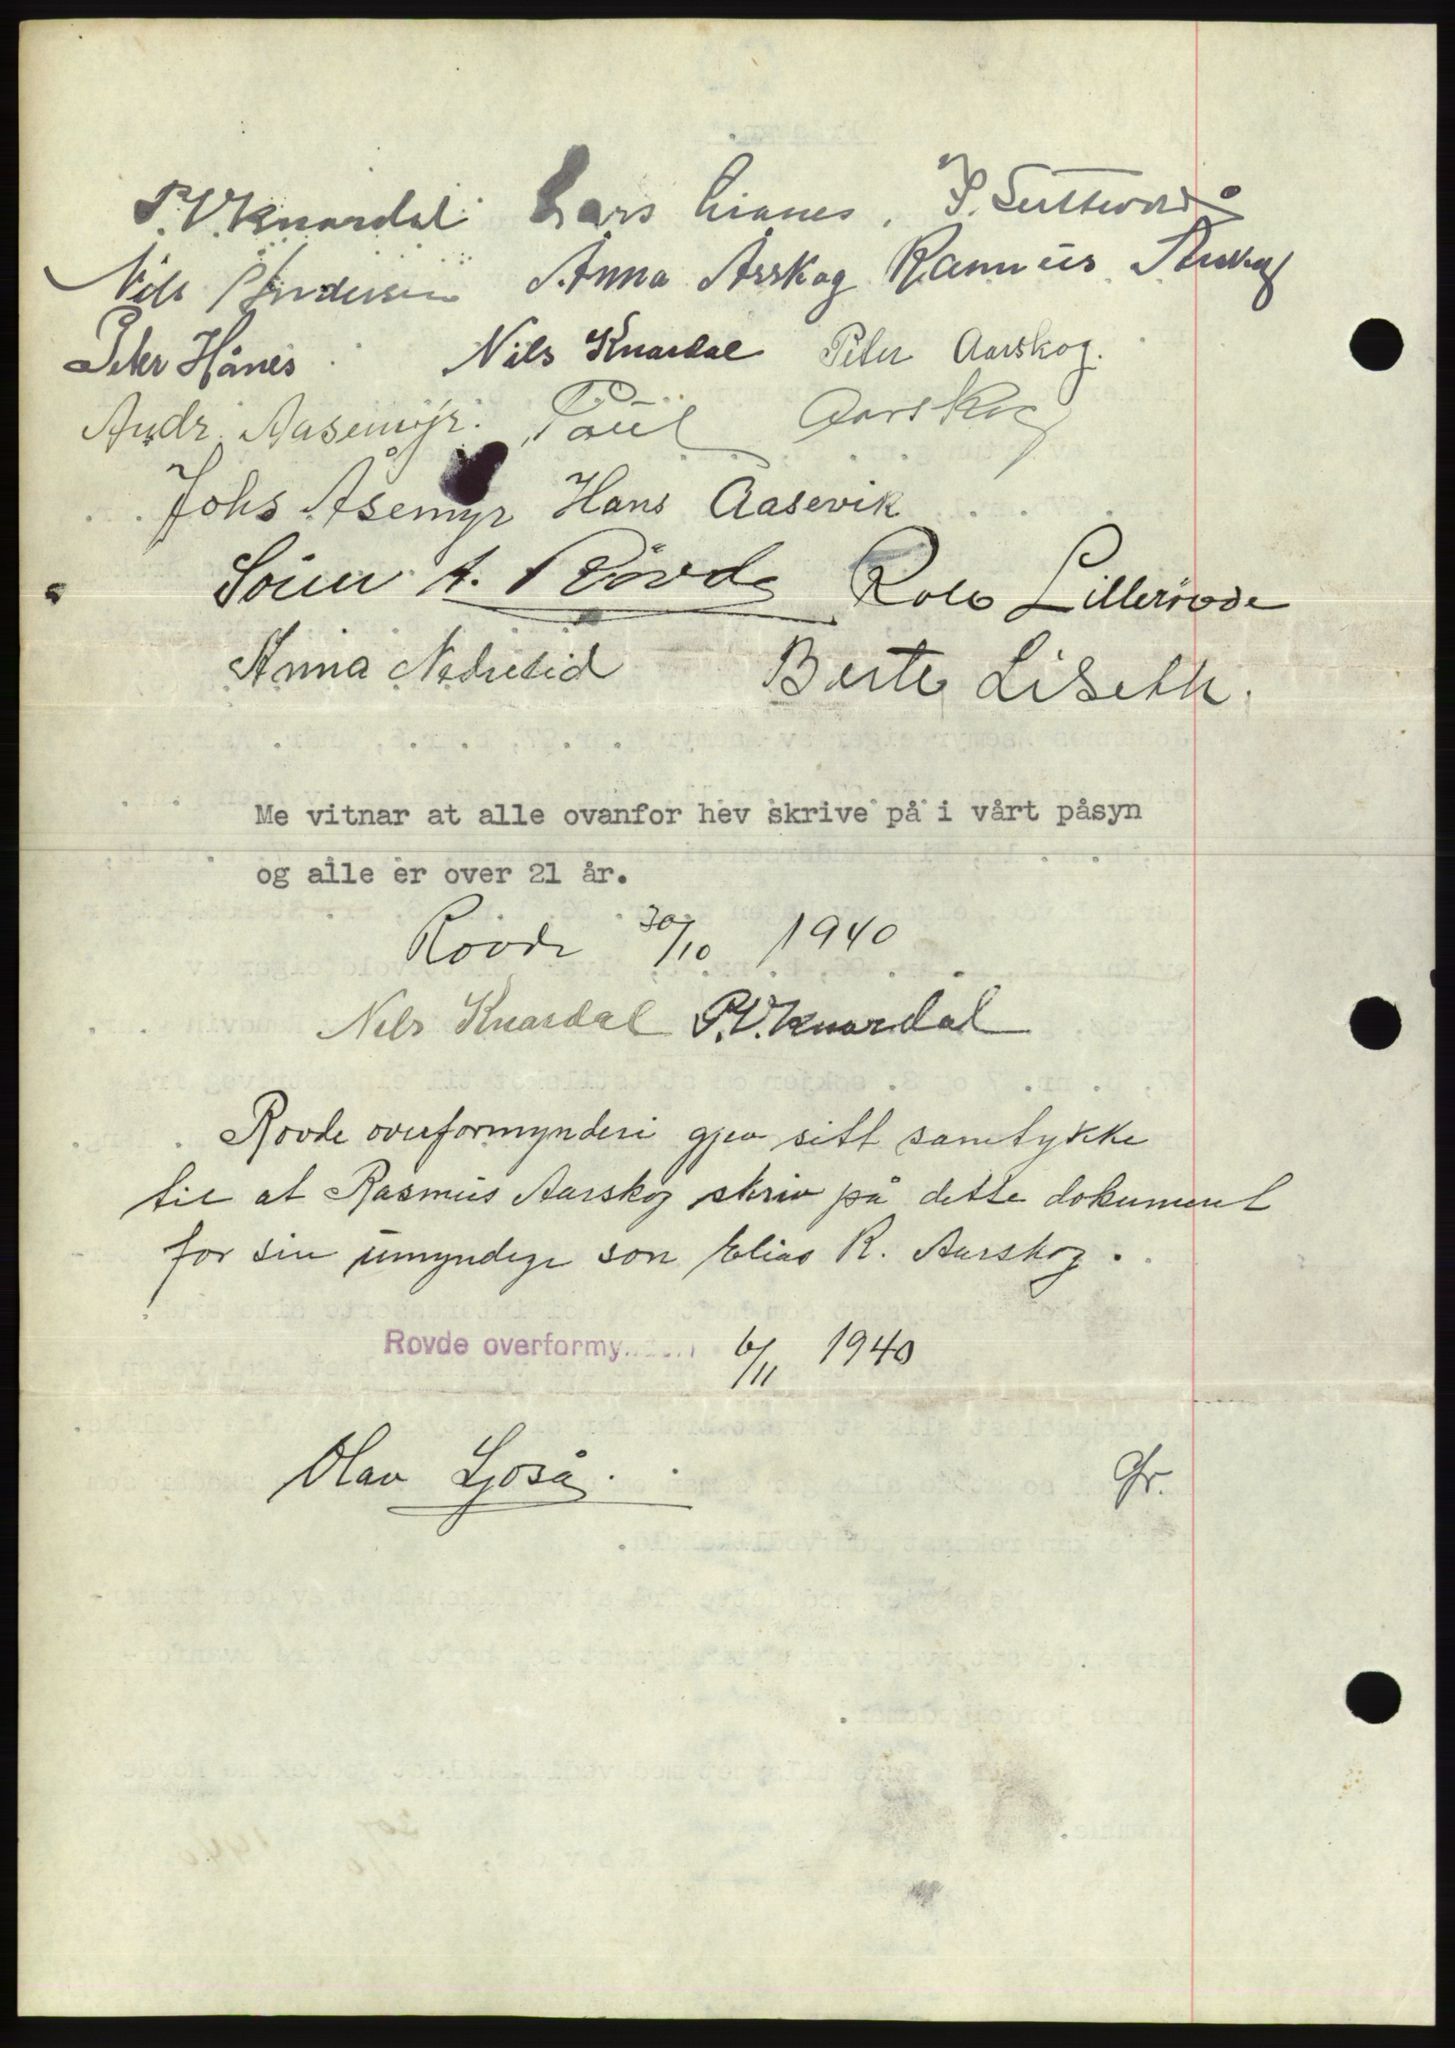 P.V. Knardal Lars
Nils Andersen Anna Årskog Rasmus Aarskog
Peter Hånes Nils Knardal Peter Aarskog.
Andr. Aasemyr. Paul Aarskog
Johs Åsemyr Hans Aasevik
A. Rövde Rolv Lillerovde
Anna Nedrelid Berte Liseth.
Me vitnar at alle ovanfor hev skrive på i vårt påsyn
og alle er over 21 år.
Rovde 30/10 1940
Nils Knardal P.V. Knardal
Rovde overformynderi gjev sitt samtykke
til at Rasmus Aarskog skriv på dette dokument
for sin umyndige son Elias R. Aarskog.
Rovde overformy 6/11 1940
Olav Ljoså.